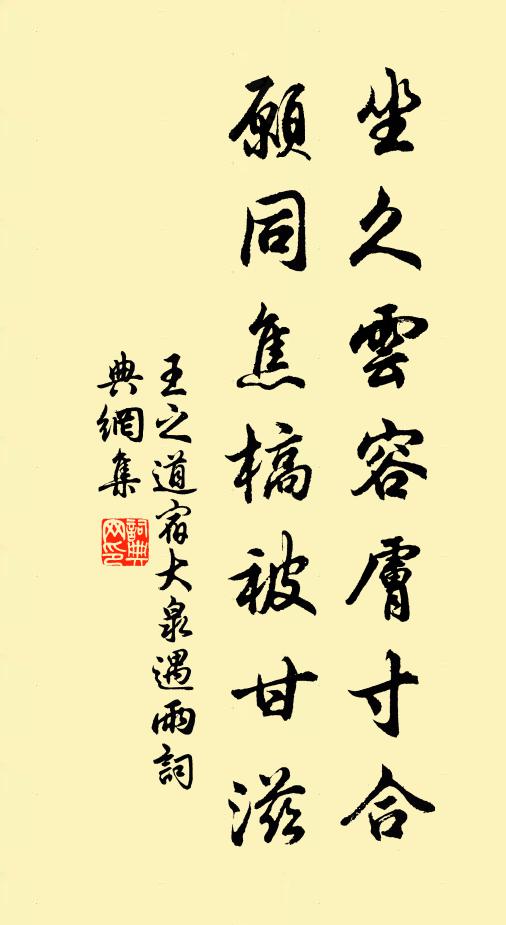 坐久雲容膚寸合
願同焦槁被甘滋
王之道宿大泉遇雨詞
典網集
詞典
网印